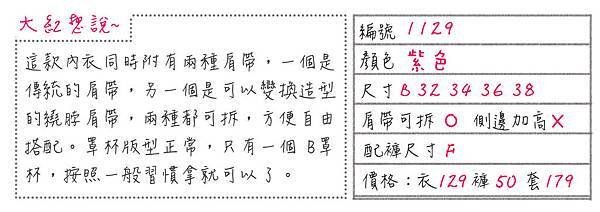 大紅想說~
這款內衣同時附有兩種肩帶，一個是
傳統的肩帶，另一個是可以變換造型
的繞脖肩帶，兩種都可拆，方便自由
搭配。罩杯版型正常，只有一個B罩
杯，按照一般習慣拿就可以了。
編號 1129
顏色 紫色
尺寸 B 32 34 36 38
肩帶可拆 O 側邊加高 X
配褲尺寸 F
價格：衣129 褲50 套179